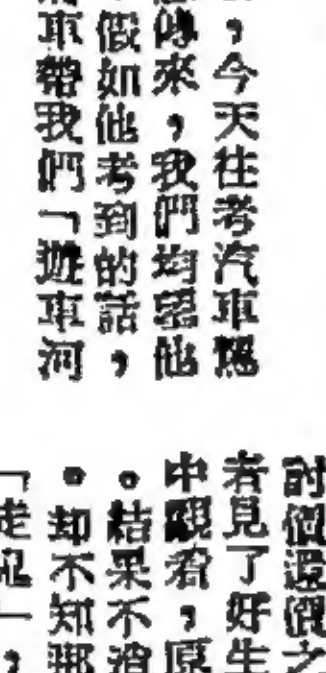 ，今天往考汽車駕
傳來，我們均望他
假如他考到的話，
車帶我們「遊車河
討價還價之
者見了好生
中觀看，原
。結果不
。却不知那
「走